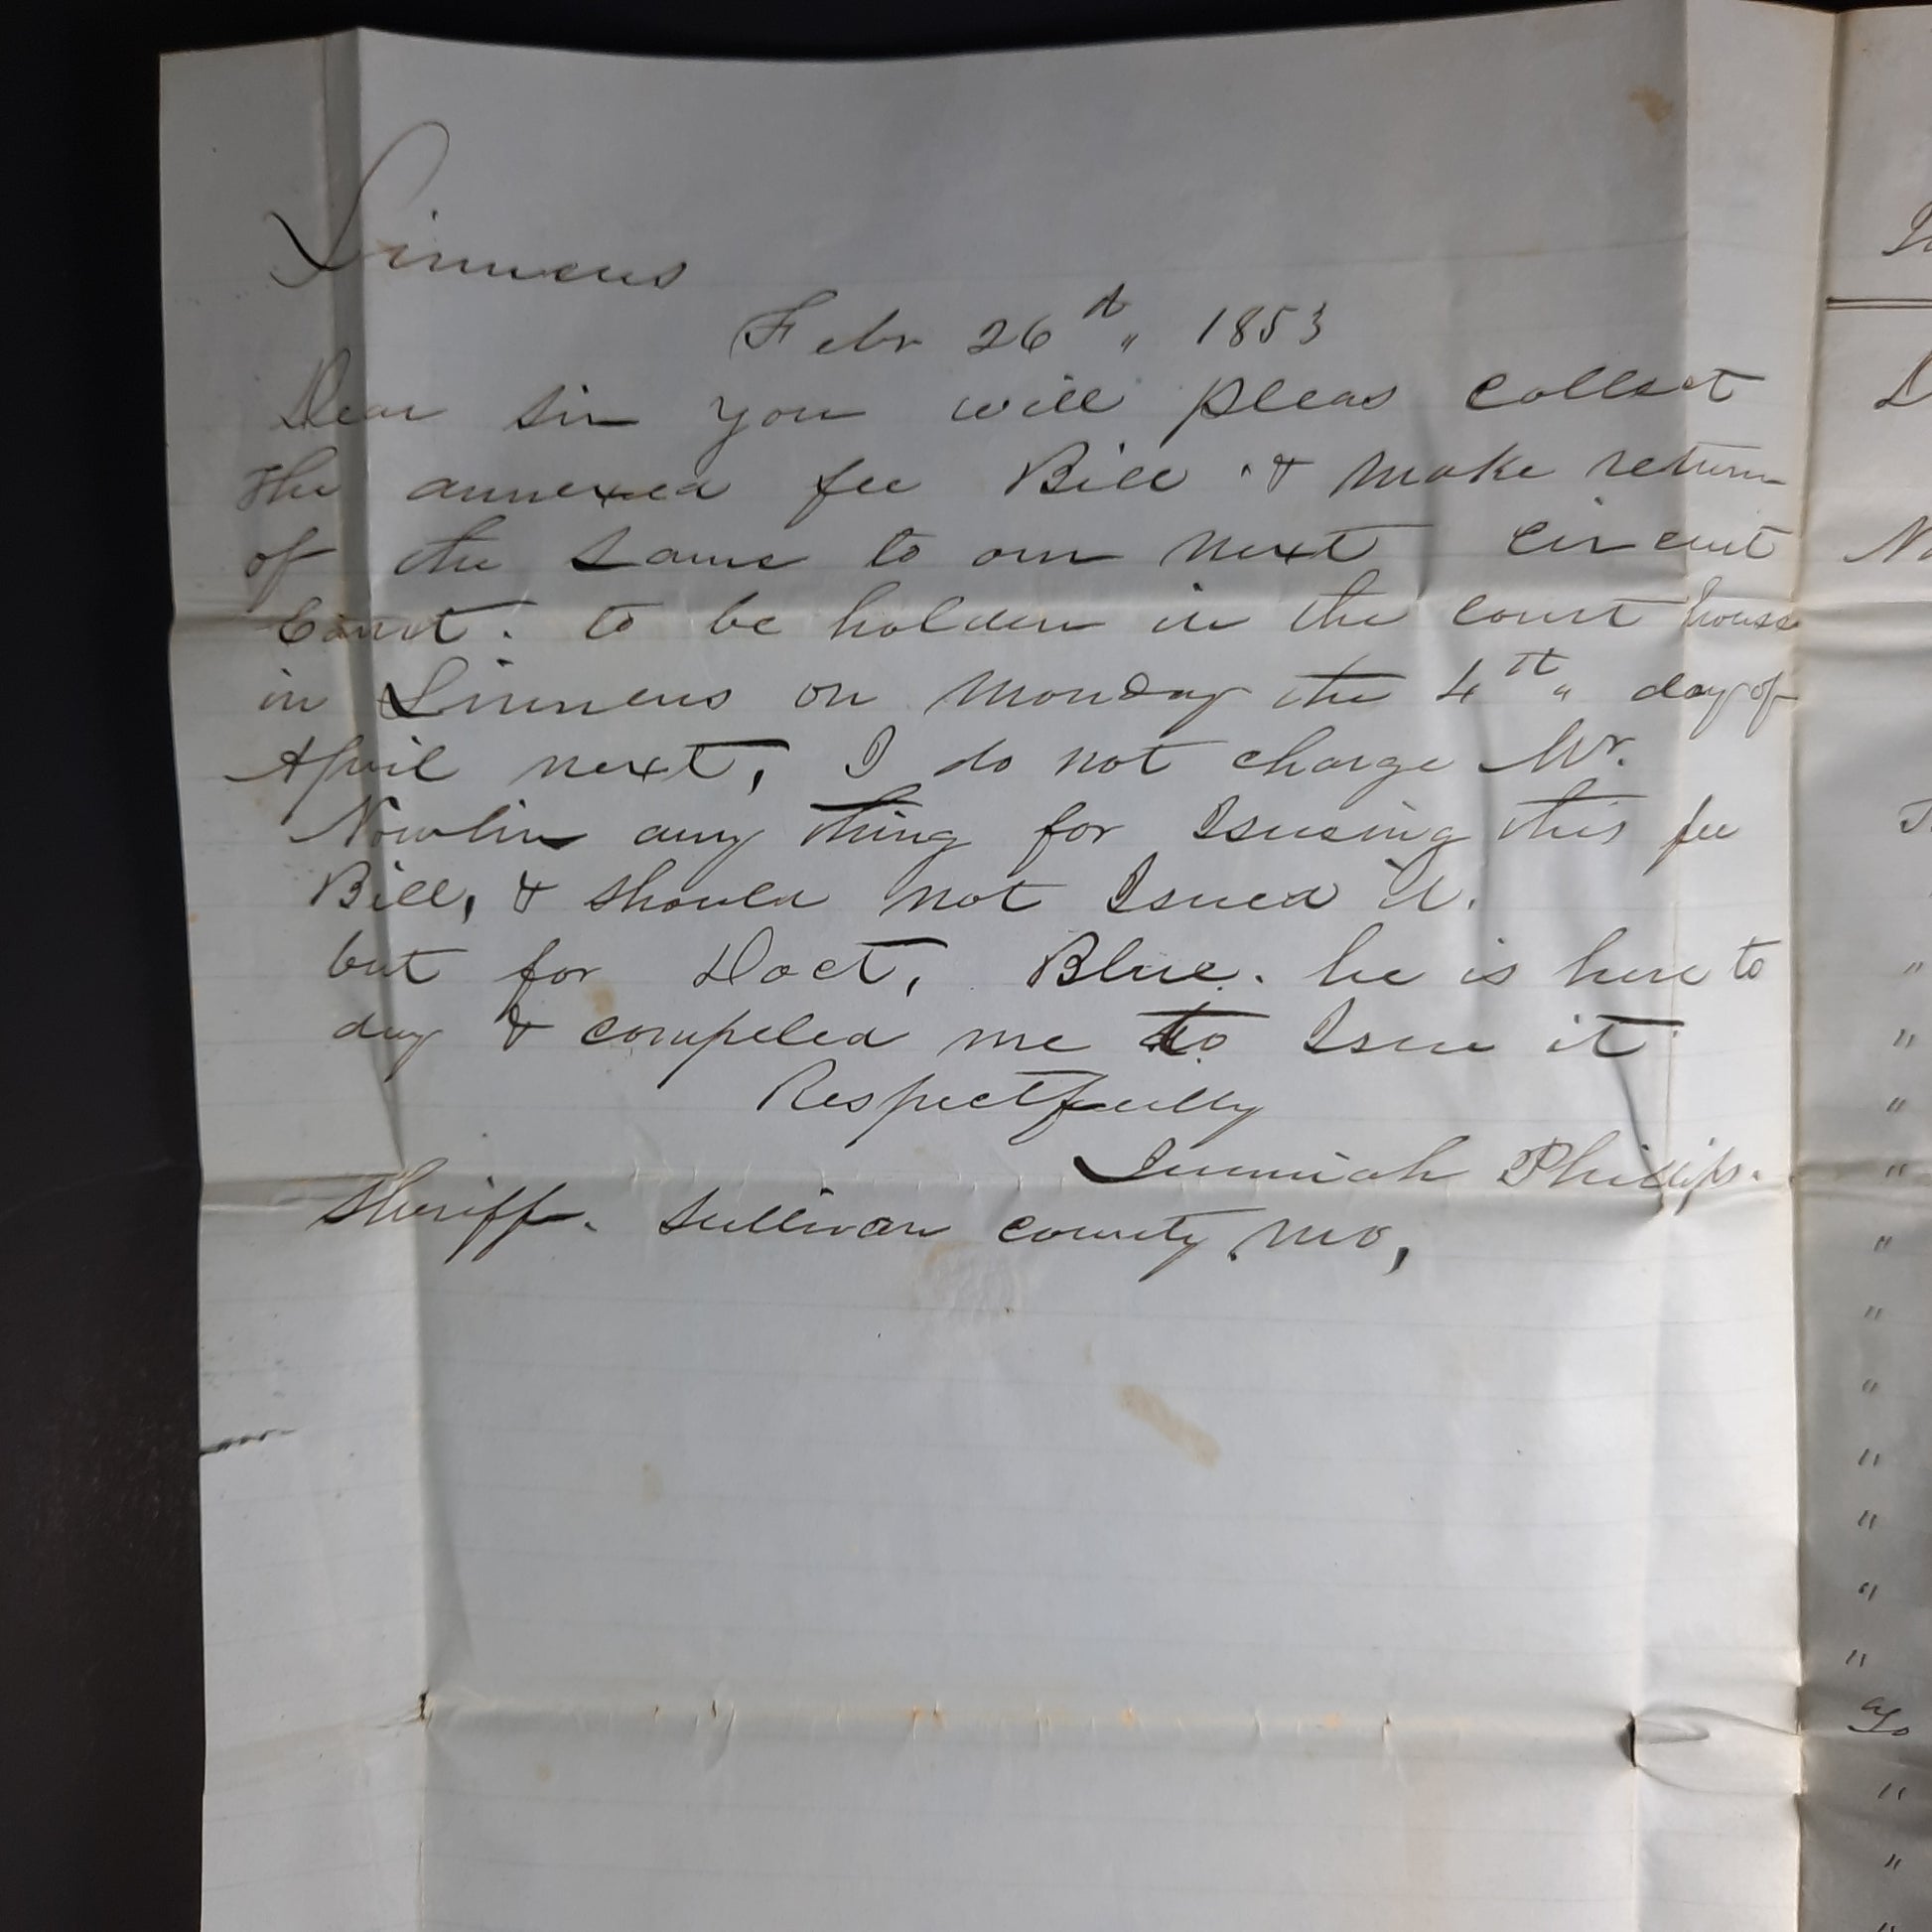 Linneus
Febr 26th, 1853
Dear sir you will pleas collect
the annexed fee Bill & make return
of the same to our next circuit
Court. to be holden in the court house
in Linneus on Monday the 4th, day of
April next, I do not charge Mr.
Nowlin any thing for Issuing this fee
Bill, & should not Issued it.
but for Doct, Blue. he is here to
day & compeled me to Issue it
Respectfully
Jeremiah Phillips.
Sheriff. Sullivan county Mo,